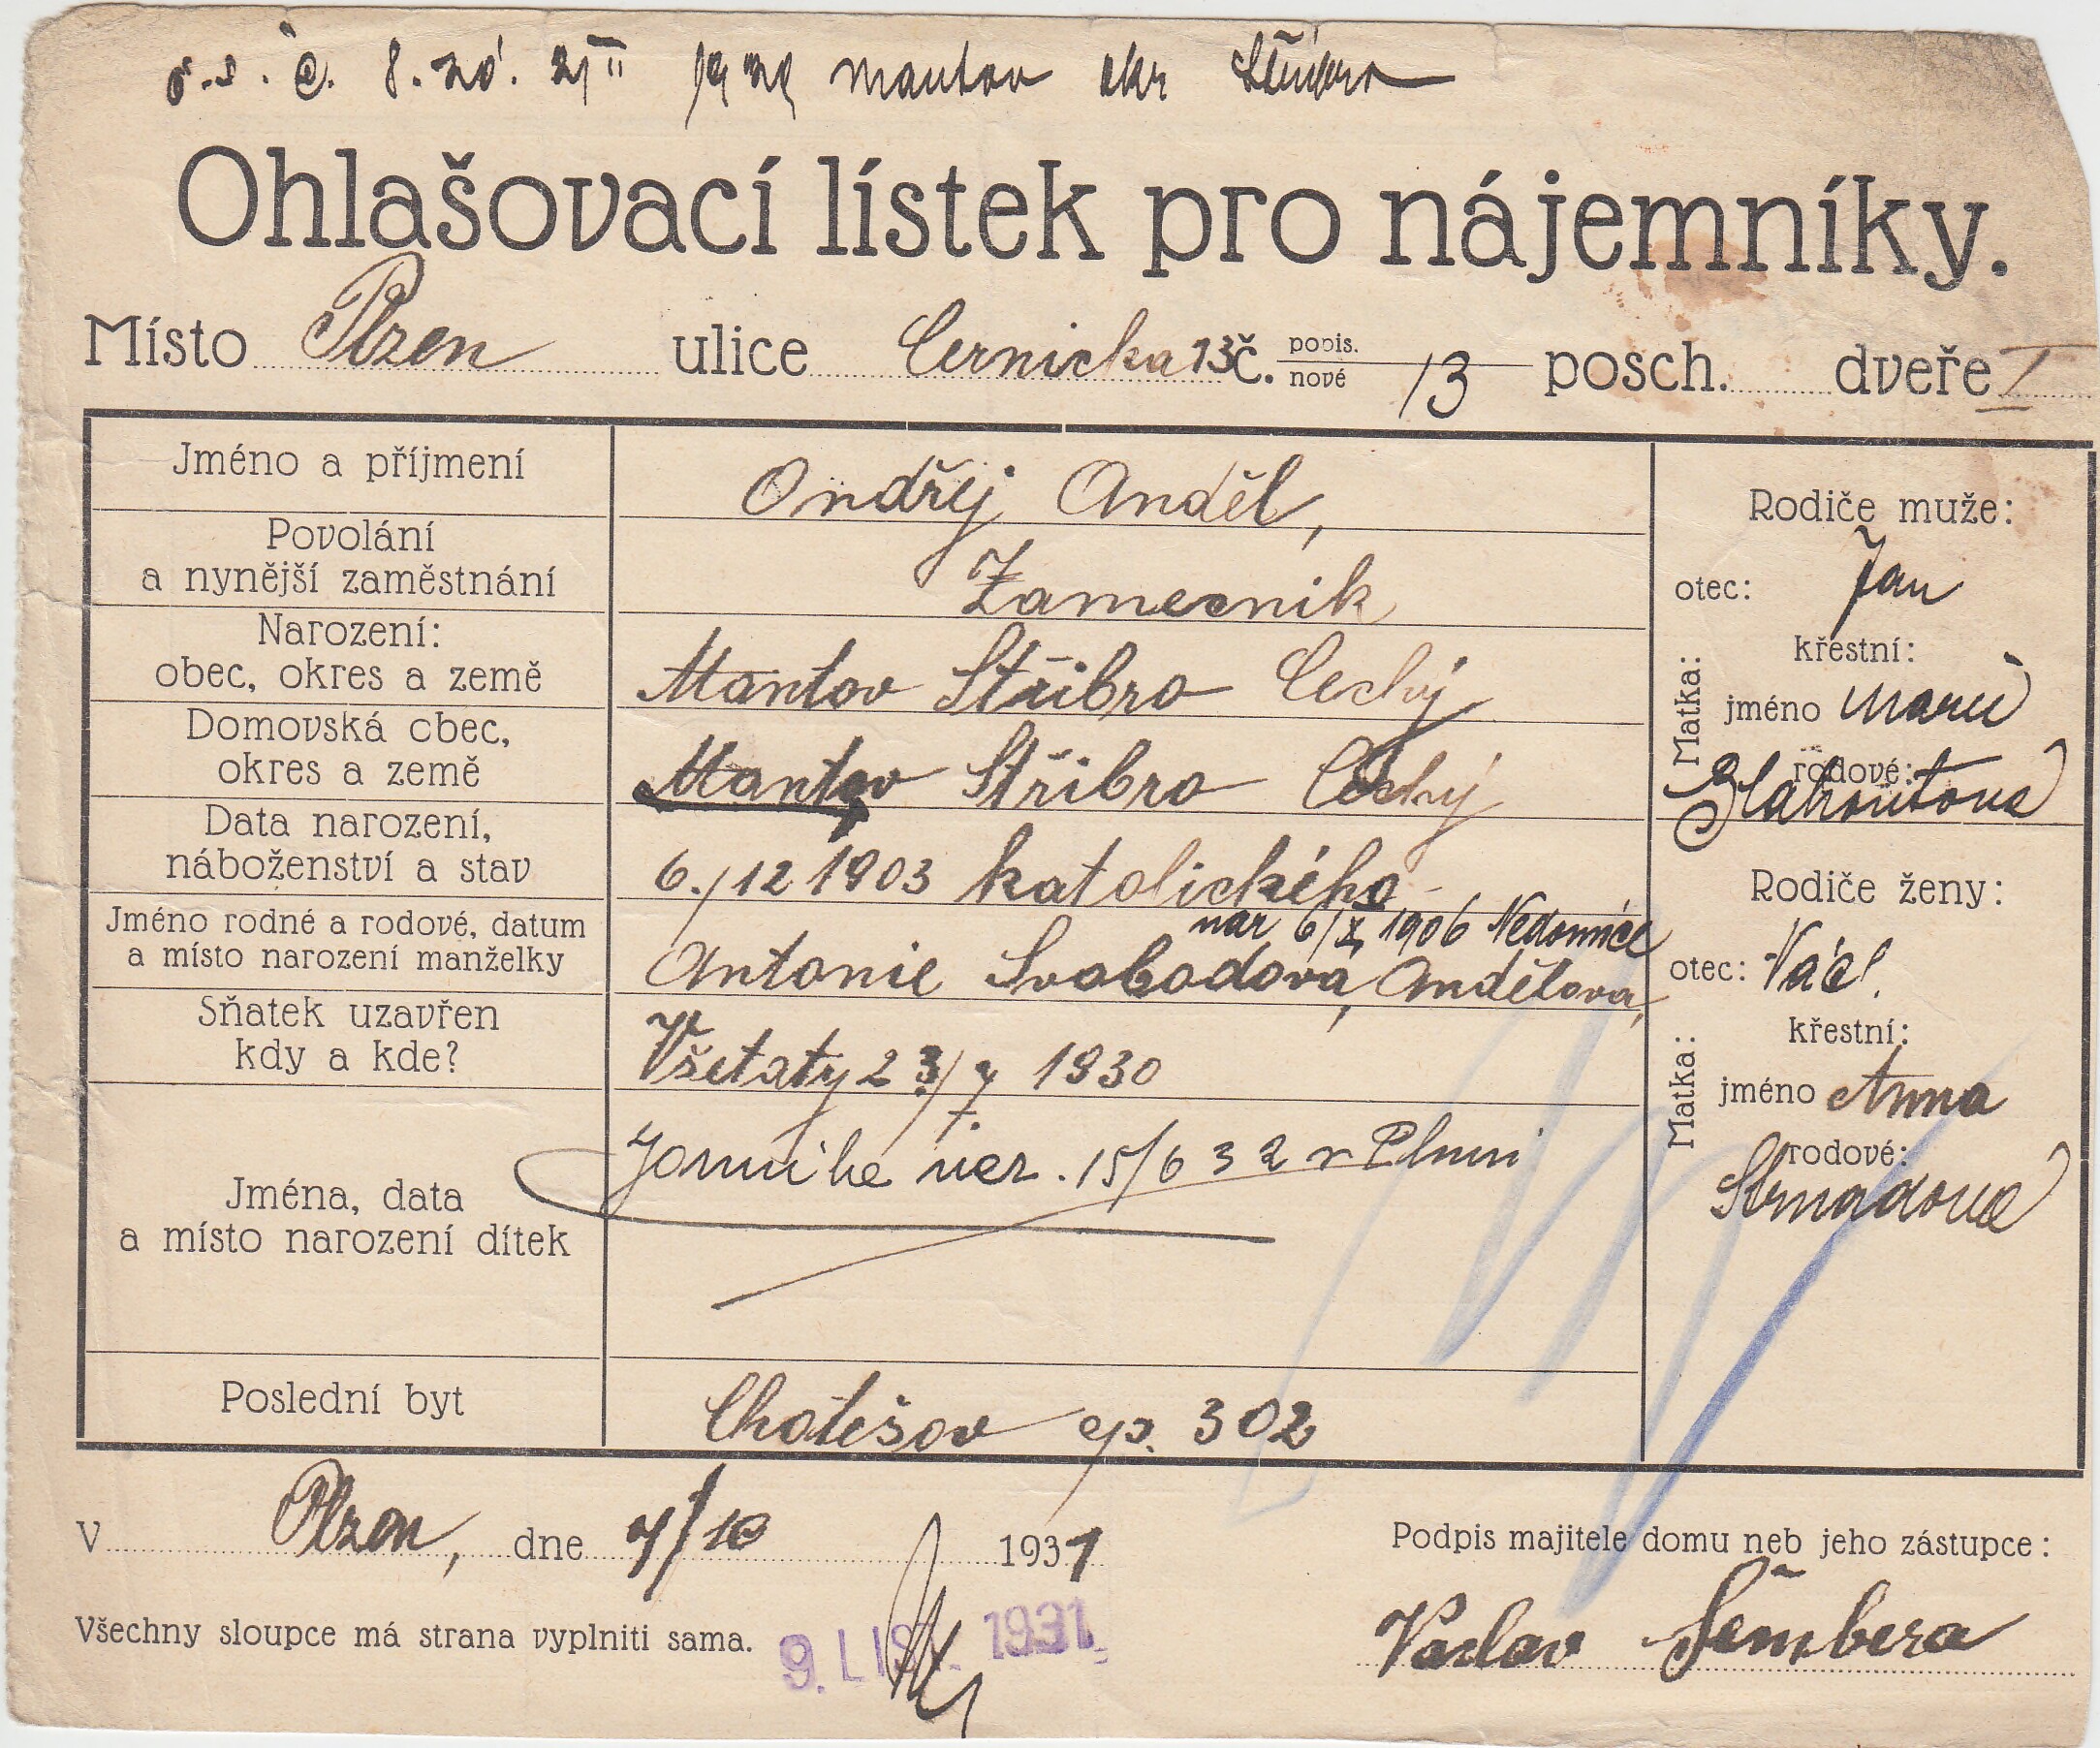 č. 8. 20. 21/II 1929 Mantov okr Stříbro
Ohlašovací lístek pro nájemníky.
Místo Plzen ulice Cernicka 13 č. popis. nové 13 posch. dveře I
Jméno a příjmení Ondřej Anděl,
Povolání
a nynější zaměstnání Zamecnik
Narození:
obec, okres a země Mantov Stříbro Cechy
Domovská obec,
okres a země Mantov Stříbro Cechy
Data narození,
náboženství a stav 6./12 1903 katolického
nar 6/X 1906 Nedomice
Jméno rodné a rodové, datum
a místo narození manželky Antonie Svobodová, Andělova,
Sňatek uzavřen
kdy a kde? Všetaty 23/7. 1930
Jména, data
a místo narození dítek 15/6 32 v Plzni
Poslední byt Chotěšov čp. 302
Rodiče muže:
otec: Jan
Matka:
křestní:
jméno Marie
rodové:
Rodiče ženy:
otec: Václ.
Matka:
křestní:
jméno Anna
rodové:
Strnadová
V Plzen, dne 7/10 1931
Podpis majitele domu neb jeho zástupce:
Všechny sloupce má strana vyplniti sama.
9. LIST. 1931
Vaclav Šembera